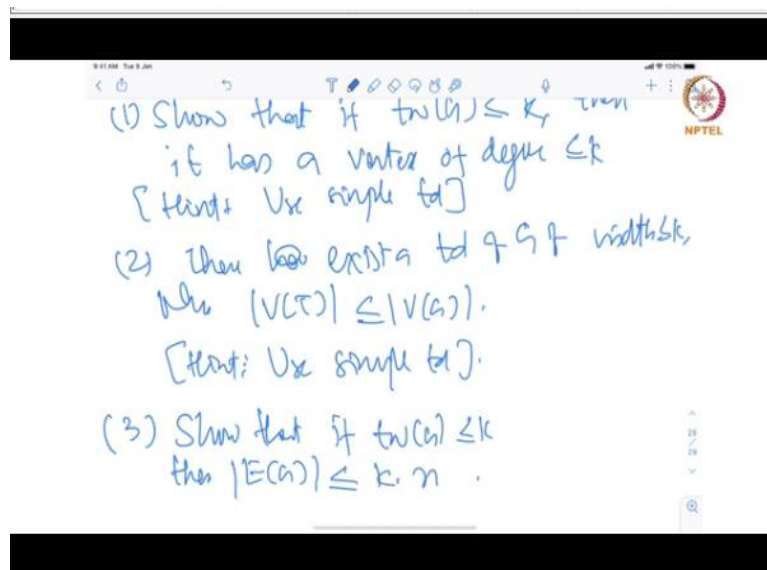 9:41 AM Tue 9 Jan
100%
NPTEL
(1) Show that if tw(G) ≤ k, then
it has a vertex of degree ≤ k
[Hint: Use simple td]
(2) There exist a td of G of width ≤ k,
|V(T)| ≤ |V(G)|.
[Hint: Use simple td].
(3) Show that if tw(G) ≤ k
then |E(G)| ≤ k. n .
29
29